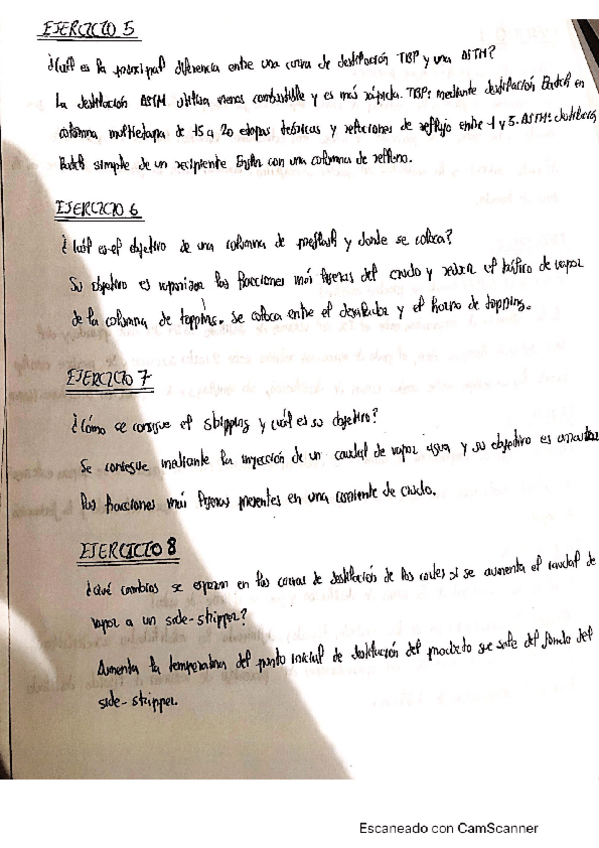 EJERCICIO 5
¿Cuál es la principal diferencia entre una curva de destilación TBP y una ASTM?
La destilación ASTM utiliza menos combustible y es más rápida. TBP: mediante destilación Batch en
columna multietapa de 15 a 20 etapas teóricas y relaciones de reflujo entre 1 y 5. ASTM: destilación
Batch simple de un recipiente Engler con una columna de relleno.
EJERCICIO 6
¿Cuál es el objetivo de una columna de preflash y donde se coloca?
Su objetivo es vaporizar las fracciones más ligeras del crudo y reducir el tráfico de vapor
de la columna de topping. Se coloca entre el desalador y el horno de topping.
EJERCICIO 7
¿Cómo se consigue el stripping y cuál es su objetivo?
Se consigue mediante la inyección de un caudal de vapor agua y su objetivo es arrastrar
las fracciones más ligeras presentes en una corriente de crudo.
EJERCICIO 8
¿Qué cambios se esperan en las curvas de destilación de los cortes si se aumenta el caudal de
vapor a un side-stripper?
Aumenta la temperatura del punto inicial de destilación del producto que sale del fondo del
side-stripper.
Escaneado con CamScanner